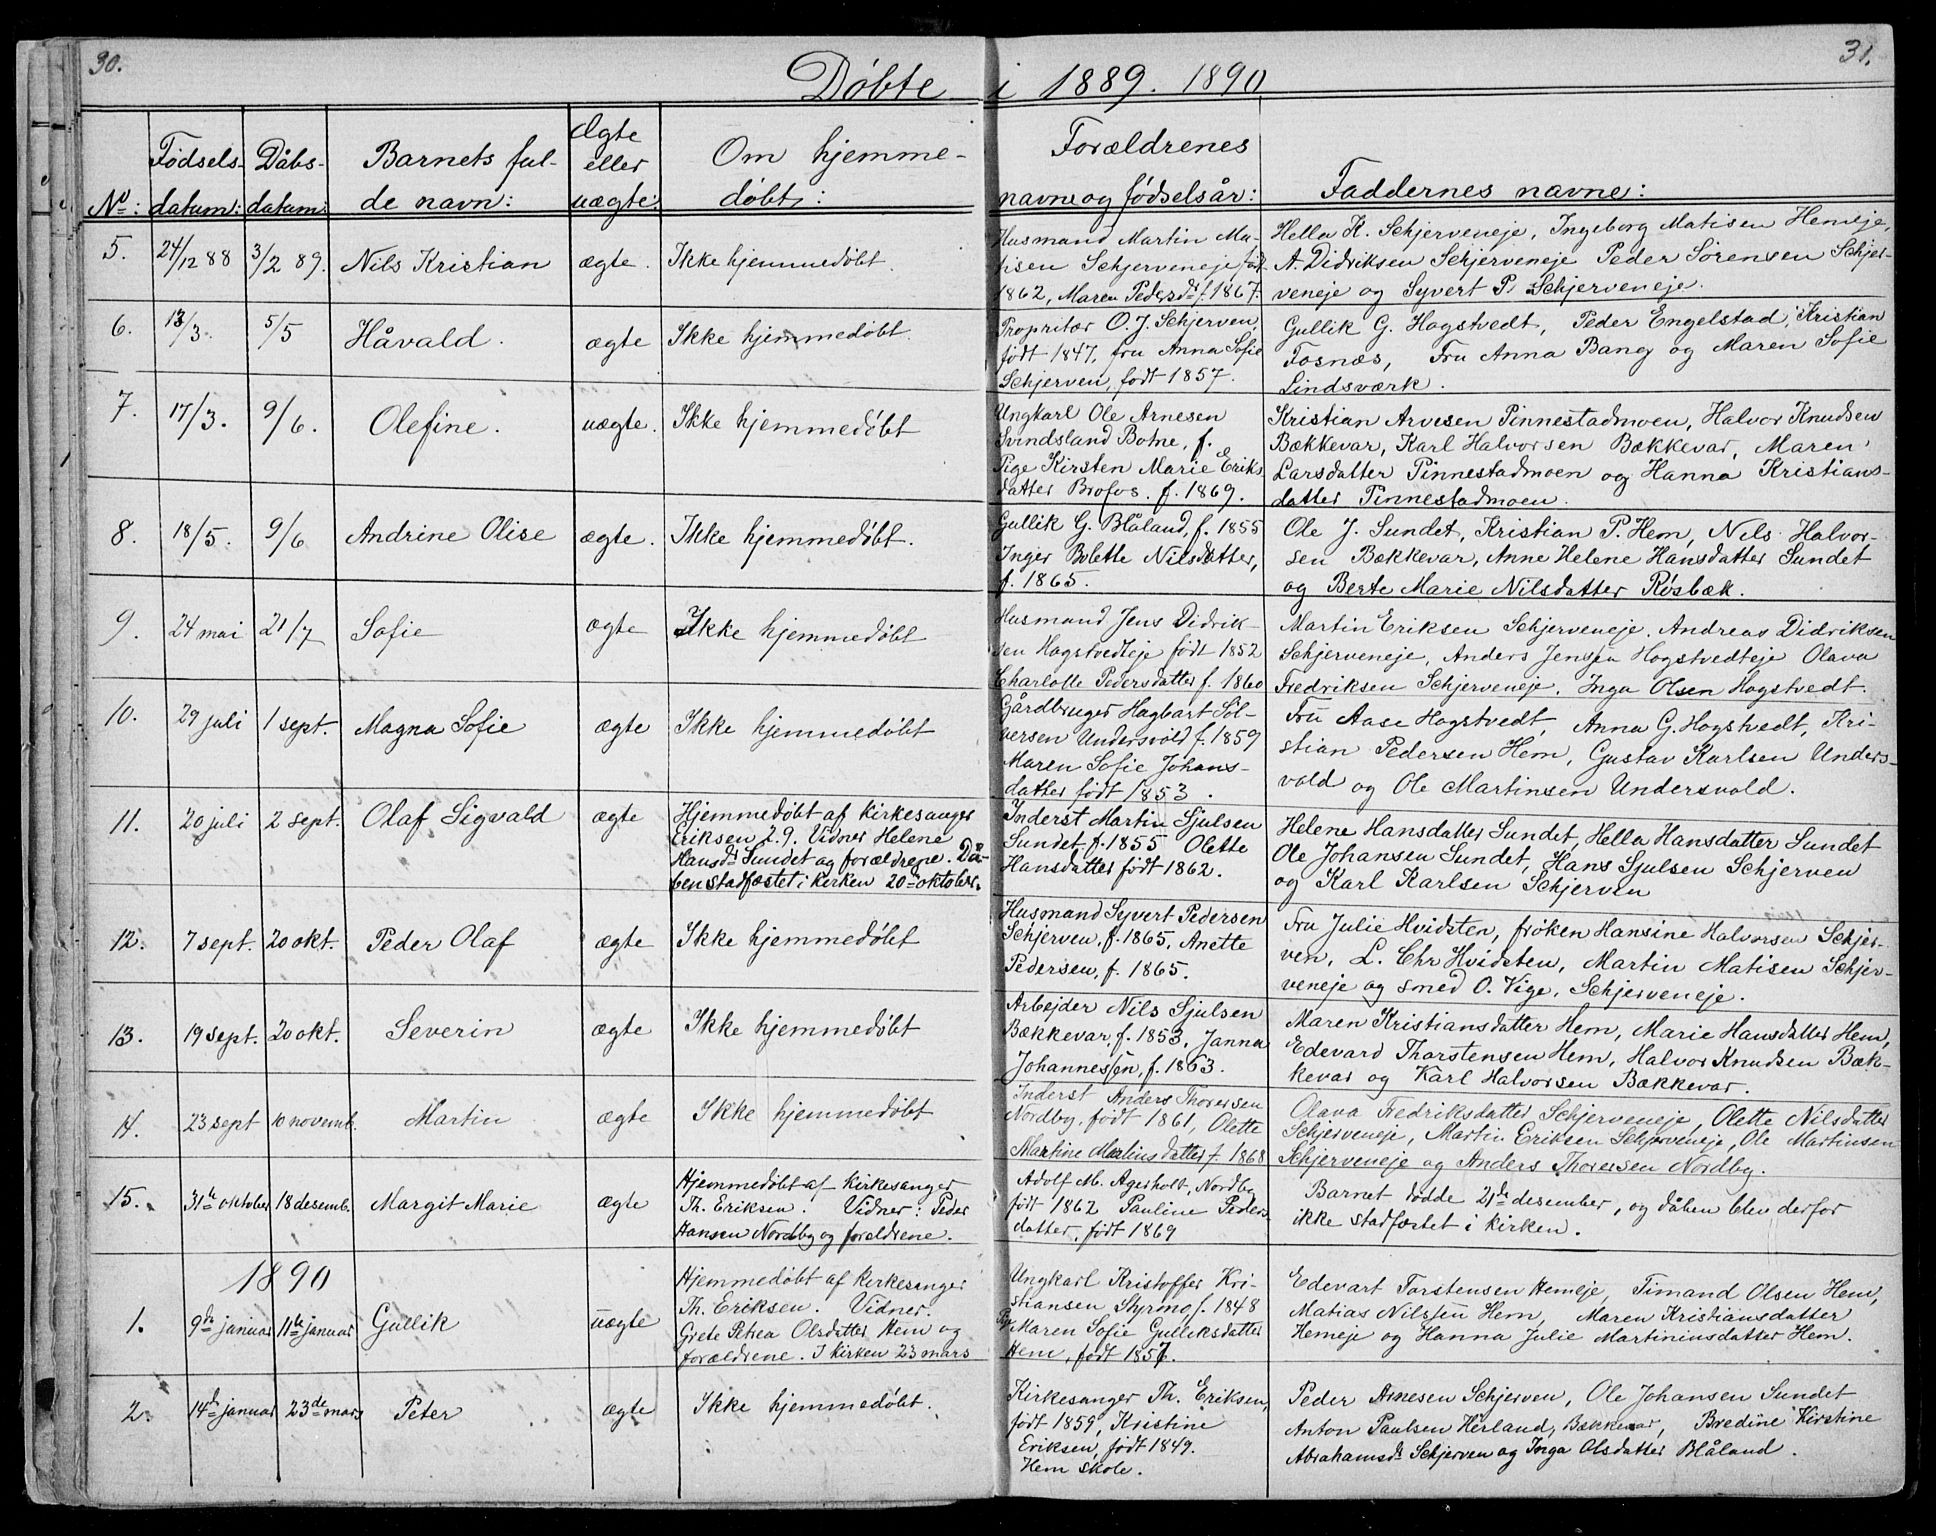 30.
31.
Døbte i 1889. 1890
No:
Fødsels-
datum:
Dåbs-
datum:
Barnets ful-
de navn:
Ægte
eller
uægte:
Om hjemme-
døbt:
Forældrenes
navne og fødselsår:
Faddernes navne:
5. 24/12 88 3/2 89. Nils Kristian ægte. Ikke hjemmedøbt.
Husmand Martin Ma-
tisen Schjerveneje født
1862, Maren Pedersdr f. 1867.
Hella K. Schjerveneje, Ingeborg Matisen Hemeje,
A. Didriksen Schjerveneje Peder Sörensen Schjer-
veneje og Syvert P. Schjerveneje.
6. 13/3. 5/5 Håvald. ægte Ikke hjemmedøbt.
Propritær O. J. Schjerven,
født 1847, fru Anna Sofie
Schjerven, født 1857.
Gullik G. Hogstvedt, Peder Engelstad, Kristian
Fosnæs, Fru Anna Bang og Maren Sofie
Lindsværk.
7. 17/3. 9/6. Olefine. uægte. Ikke hjemmedøbt
Ungkarl Ole Arnesen
Svindsland Botne, f.
Pige Kirsten Marie Eriks
datter Brofos. f. 1869.
Kristian Arvesen Pinnestadmoen, Halvor Knudsen
Bækkevar, Karl Halvorsen Bækkevar, Maren
Larsdatter Pinnestadmoen og Hanna Kristians-
datter Pinnestadmoen.
8. 18/5. 9/6 Andrine Olise ægte. Ikke hjemmedøbt.
Gullik G. Blåland, f. 1855
Inger Bolette Nilsdatter,
f. 1865.
Ole J. Sundet, Kristian P. Hem, Nils Halvor-
sen Bækkevar, Anne Helene Hansdatter Sundet
og Berte Marie Nilsdatter Røsbæk.
9. 24 mai 21/7 Sofie ægte Ikke hjemmedøbt
Husmand Jens Didrik-
sen Hogstvedteje født 1852
Charlotte Pedersdatter f. 1860
Martin Eriksen Schjerveneje. Andreas Didriksen
Schjerveneje, Anders Jensen Hogstvedteje Olava
Fredriksen Schjerveneje, Inga Olsen Hogstvedt.
10. 29 juli 1 sept. Magna Sofie ægte Ikke hjemmedøbt
Gårdbruger Hagbart Søl-
versen Undersvold f. 1859
Maren Sofie Johans-
datter født 1853.
Fru Aase Hogstvedt, Anna G. Hogstvedt, Kri-
stian Pedersen Hem, Gustav Karlsen Unders-
vold og Ole Martinsen Undersvold.
11. 20 juli 2 sept. Olaf Sigvald ægte
Hjemmedøbt af kirkesanger
Eriksen 2.9. Vidner Helene
Hansdr Sundet og forældrene. Då-
ben stadfæstet i kirken 20de oktober.
Inderst Martin Sjulsen
Sundet f. 1855 Olette
Hansdatter født 1862.
Helene Hansdatter Sundet, Hella Hansdatter Sundet
Ole Johansen Sundet, Hans Sjulsen Schjerven
og Karl Karlsen Schjerven
12. 7 sept. 20 okt. Peder Olaf ægte Ikke hjemmedøbt
Husmand Syvert Pedersen
Schjerven, f. 1865, Anette
Pedersen, f. 1865.
Fru Julie Hvidsten, frøken Hansine Halvorsen Schjer-
ven, L. Chr Hvidsten, Martin Matisen Schjer-
veneje og smed O. Vige, Schjerveneje.
13. 19 sept. 20 okt. Severin ægte Ikke hjemmedøbt
Arbejder Nils Sjulsen
Bækkevar, f. 1853, Janna
Johannessen, f. 1863.
Maren Kristiansdatter Hem, Marie Hansdatter Hem,
Edevard Thorstensen Hem, Halvor Knudsen Bæk-
kevar og Karl Halvorsen Bækkevar.
14. 23 sept 10 novemb. Martin ægte Ikke hjemmedøbt
Inderst Anders Thoresen
Nordby, født 1861, Olette
Martine Martinsdatter f. 1868
Olava Fredriksdatter Schjerveneje, Olette Nilsdatter
Schjerveneje, Martin Eriksen Schjerveneje, Ole Martinsen
Schjerveneje og Anders Thoresen Nordby.
15. 31te oktober 18 desemb. Margit Marie ægte
Hjemmedøbt af kirkesanger
Th. Eriksen. Vidner: Peder
Hansen Nordby og forældrene.
Adolf M. Agerholt, Nordby
født 1862 Pauline Peders-
datter, født 1869
Barnet døde 21de desember, og dåben blev derfor
ikke stadfæstet i kirken.
1890
1. 9de januar 11te januar Gullik uægte
Hjemmedøbt af kirkesanger
Th. Eriksen. Vidner.
Grete Petrea Olsdatter Hem og
forældrene. I kirken 23 mars
Ungkarl Kristoffer Kri-
stiansen Styrmo f. 1848
Pige Maren Sofie Gulliksdatter
Hem, født 1857.
Edevart Torstensen Hemeje, Timand Olsen Hem,
Matias Nilssen Hem, Maren Kristiansdatter
Hemeje og Hanna Julie Martiniusdatter Hem.
2. 14de januar 23de mars Peter ægte Ikke hjemmedøbt.
Kirkesanger Th. Eriksen,
født 1859, Kristine
Eriksen, født 1849.
Hem skole.
Peder Arnesen Schjerven, Ole Johansen Sundet
Anton Paulsen Herland, Bækkevar, Bredine Kirstine
Abrahamsdr Schjerven og Inga Olsdatter Blåland.